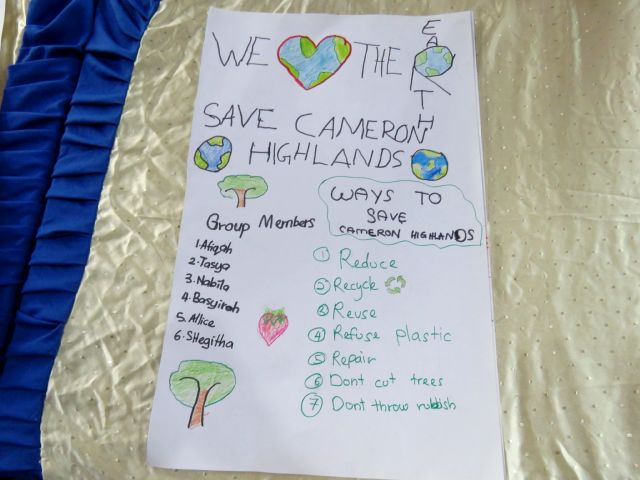 WE THE EARTH
SAVE CAMERON
HIGHLANDS
Group Members
1. Atiqah
2. Tasya
3. Nabila
4. Basyirah
5. Allice
6. SHegitha
WAYS TO
SAVE
CAMERON HIGHLANDS
1 Reduce
2 Recycle
3 Reuse
4 Refuse plastic
5 Repair
6 Dont cut trees
7 Dont throw rubbish